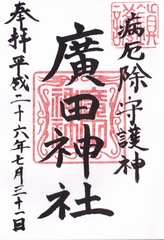 病厄除守護神
廣田神社
奉拝 平成二十六年七月三十一日